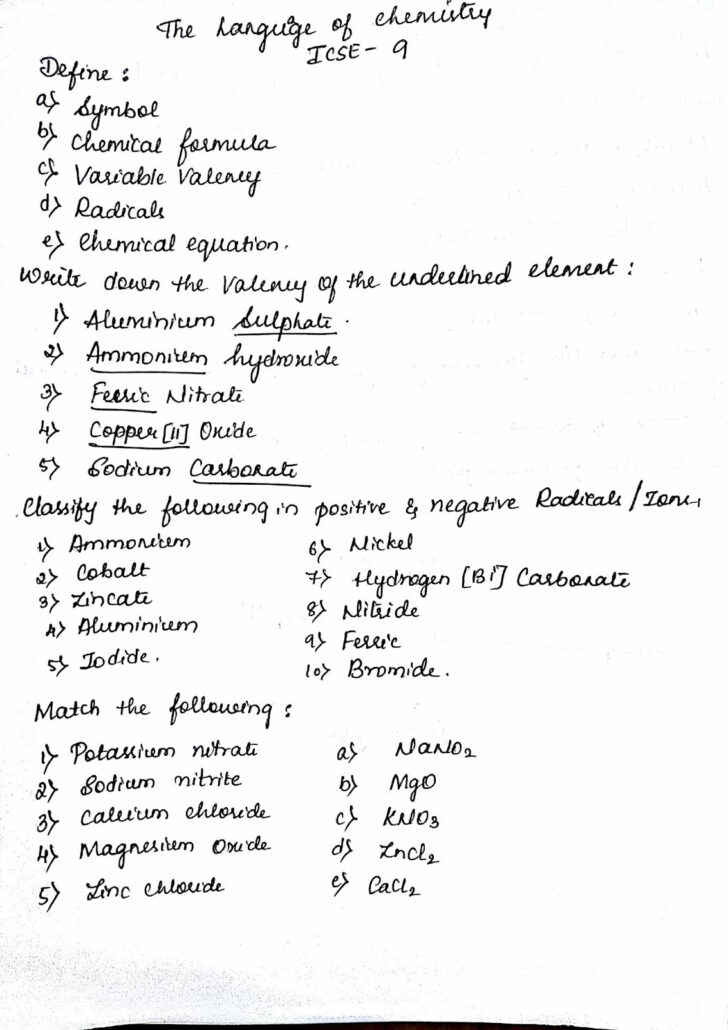 The Language of chemistry
ICSE - 9
Define :
a) Symbol
b) Chemical formula
c) Variable Valency
d) Radicals
e) Chemical equation.
Write down the Valency of the underlined element :
1) Aluminium Sulphate.
2) Ammonium hydroxide
3) Ferric Nitrate
4) Copper [II] Oxide
5) Sodium Carbonate
Classify the following in positive & negative Radicals / Ions
1) Ammonium
2) Cobalt
3) Zincate
4) Aluminium
5) Iodide.
6) Nickel
7) Hydrogen [Bi] Carbonate
8) Nitride
9) Ferric
10) Bromide.
Match the following :
1) Potassium nitrate a) NaNO2
2) Sodium nitrite b) MgO
3) Calcium chloride c) KNO3
4) Magnesium Oxide d) ZnCl2
5) Zinc chloride e) CaCl2